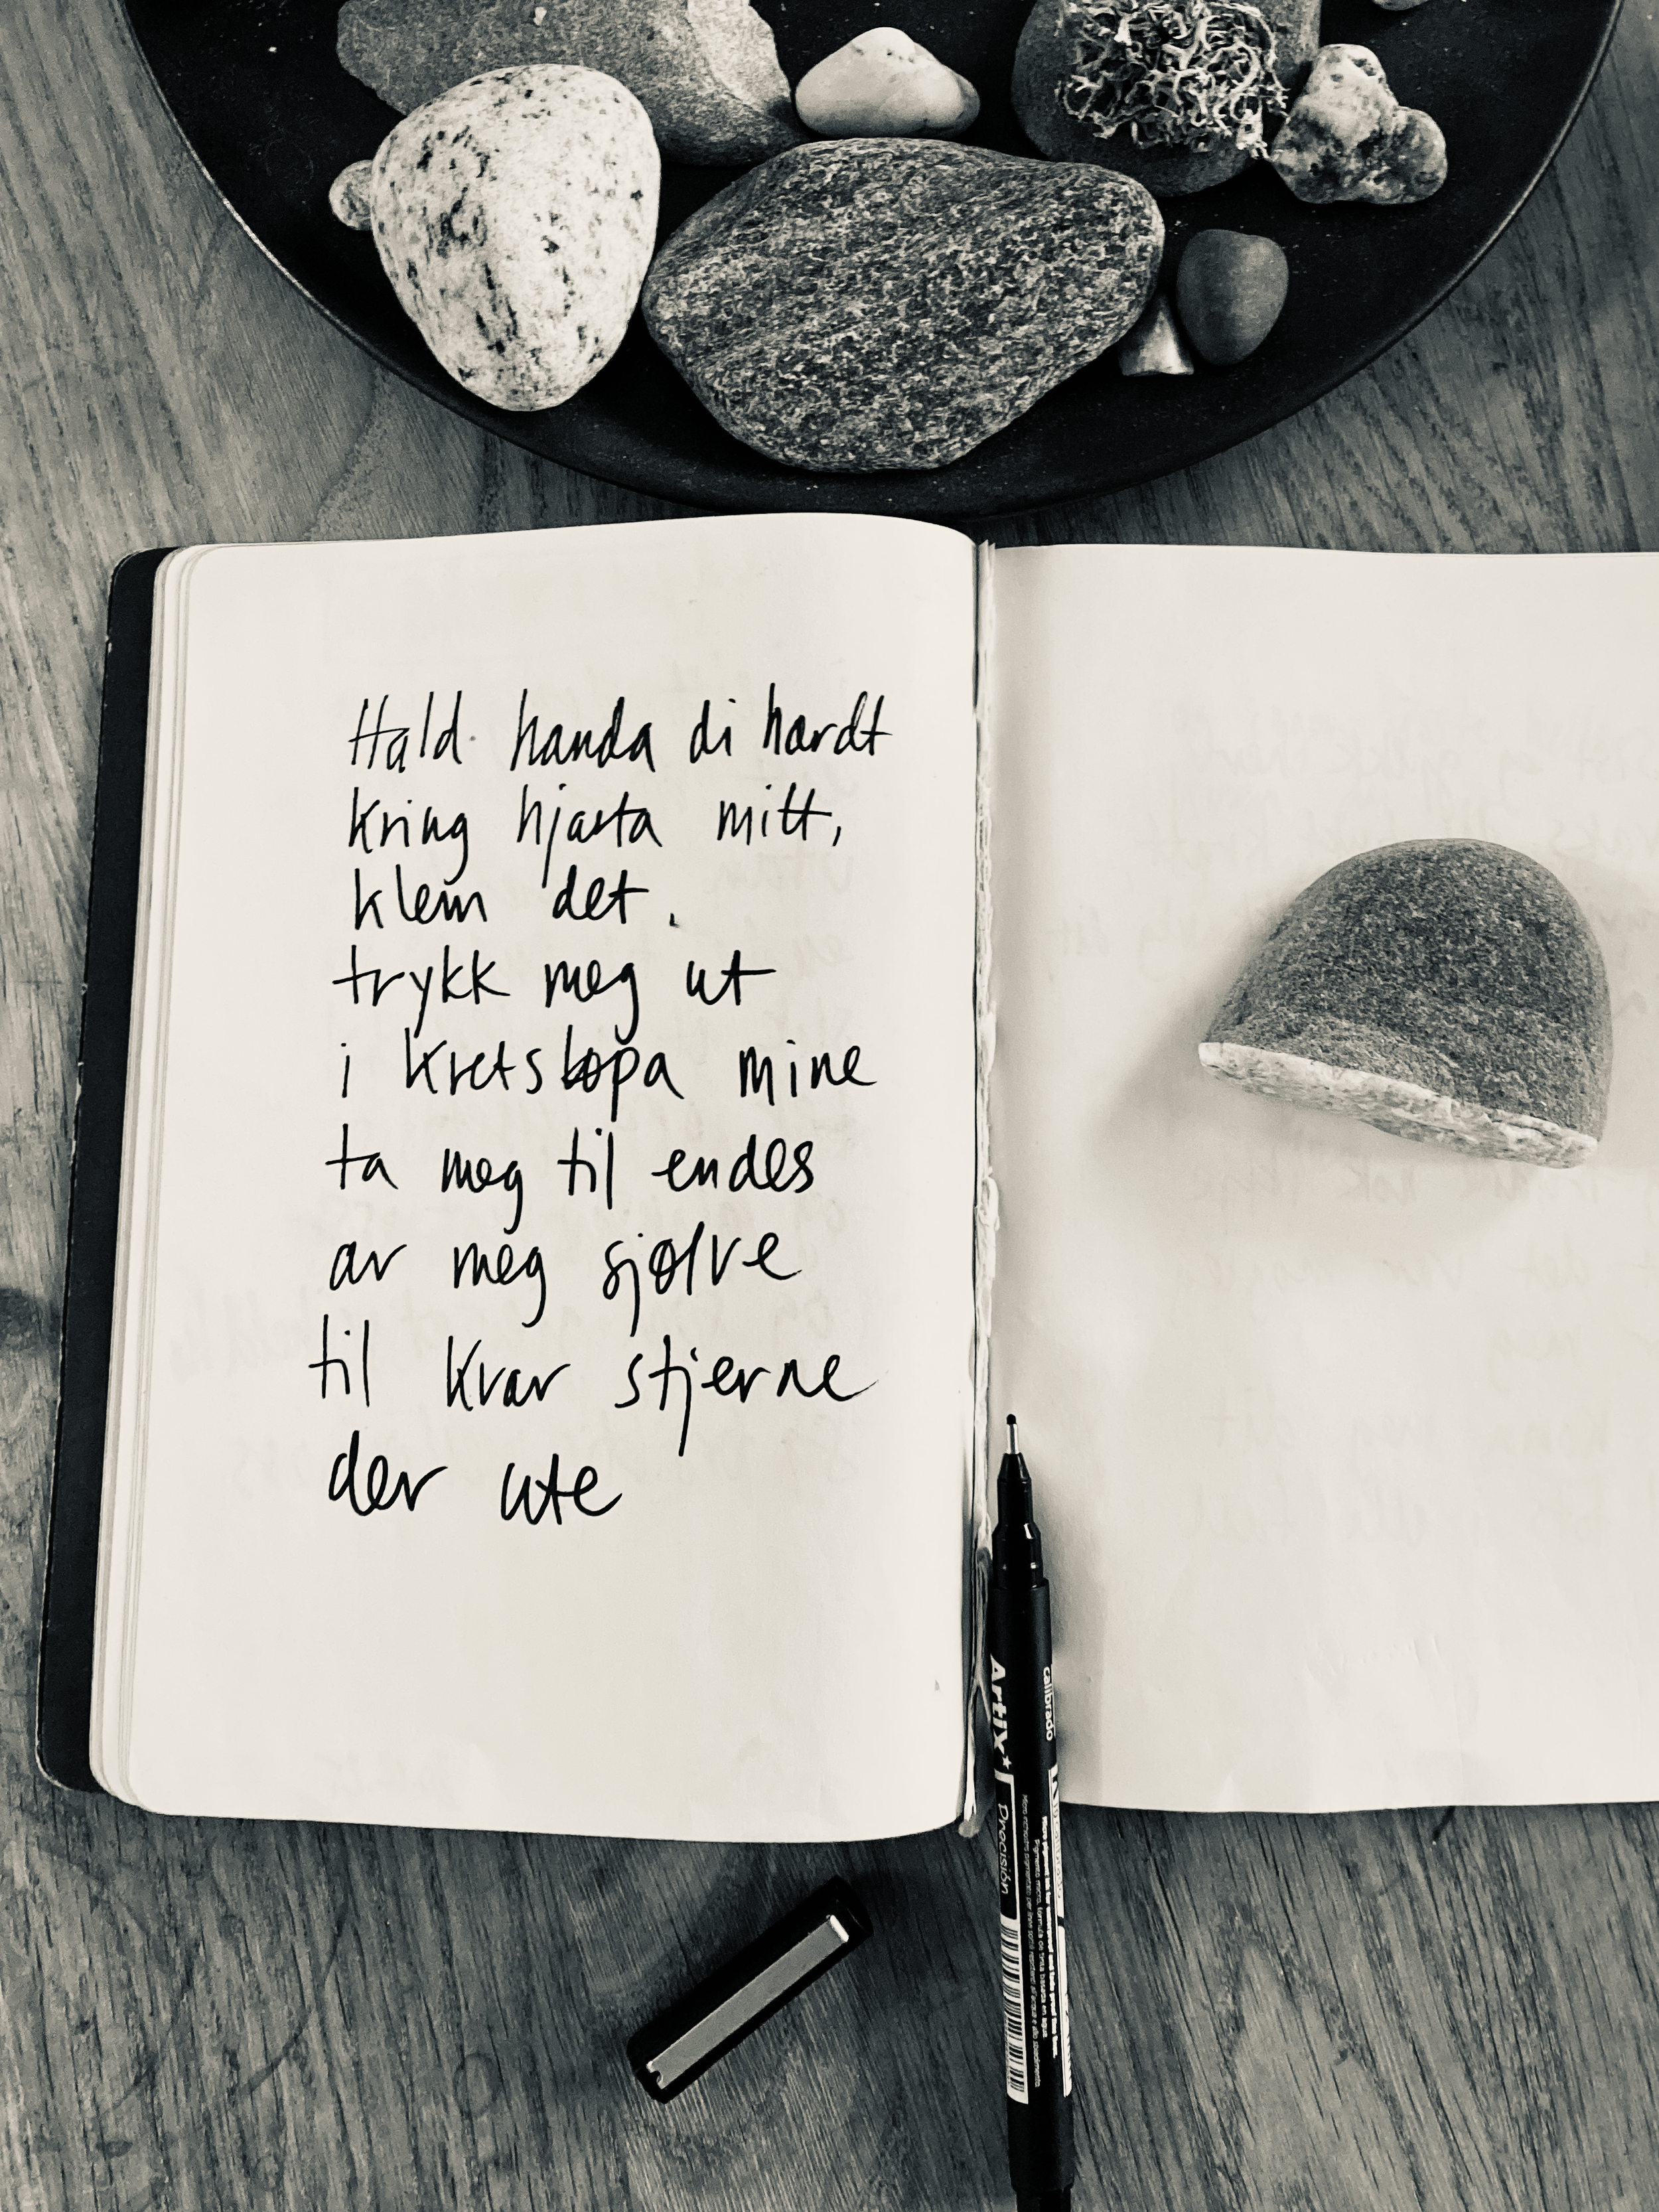 Hald handa di hardt
kring hjarta mitt,
klem det.
trykk meg ut
i kretsløpa mine
ta meg til endes
av meg sjølve
til kvar stjerne
der ute
calibrado
Artix
Precisión